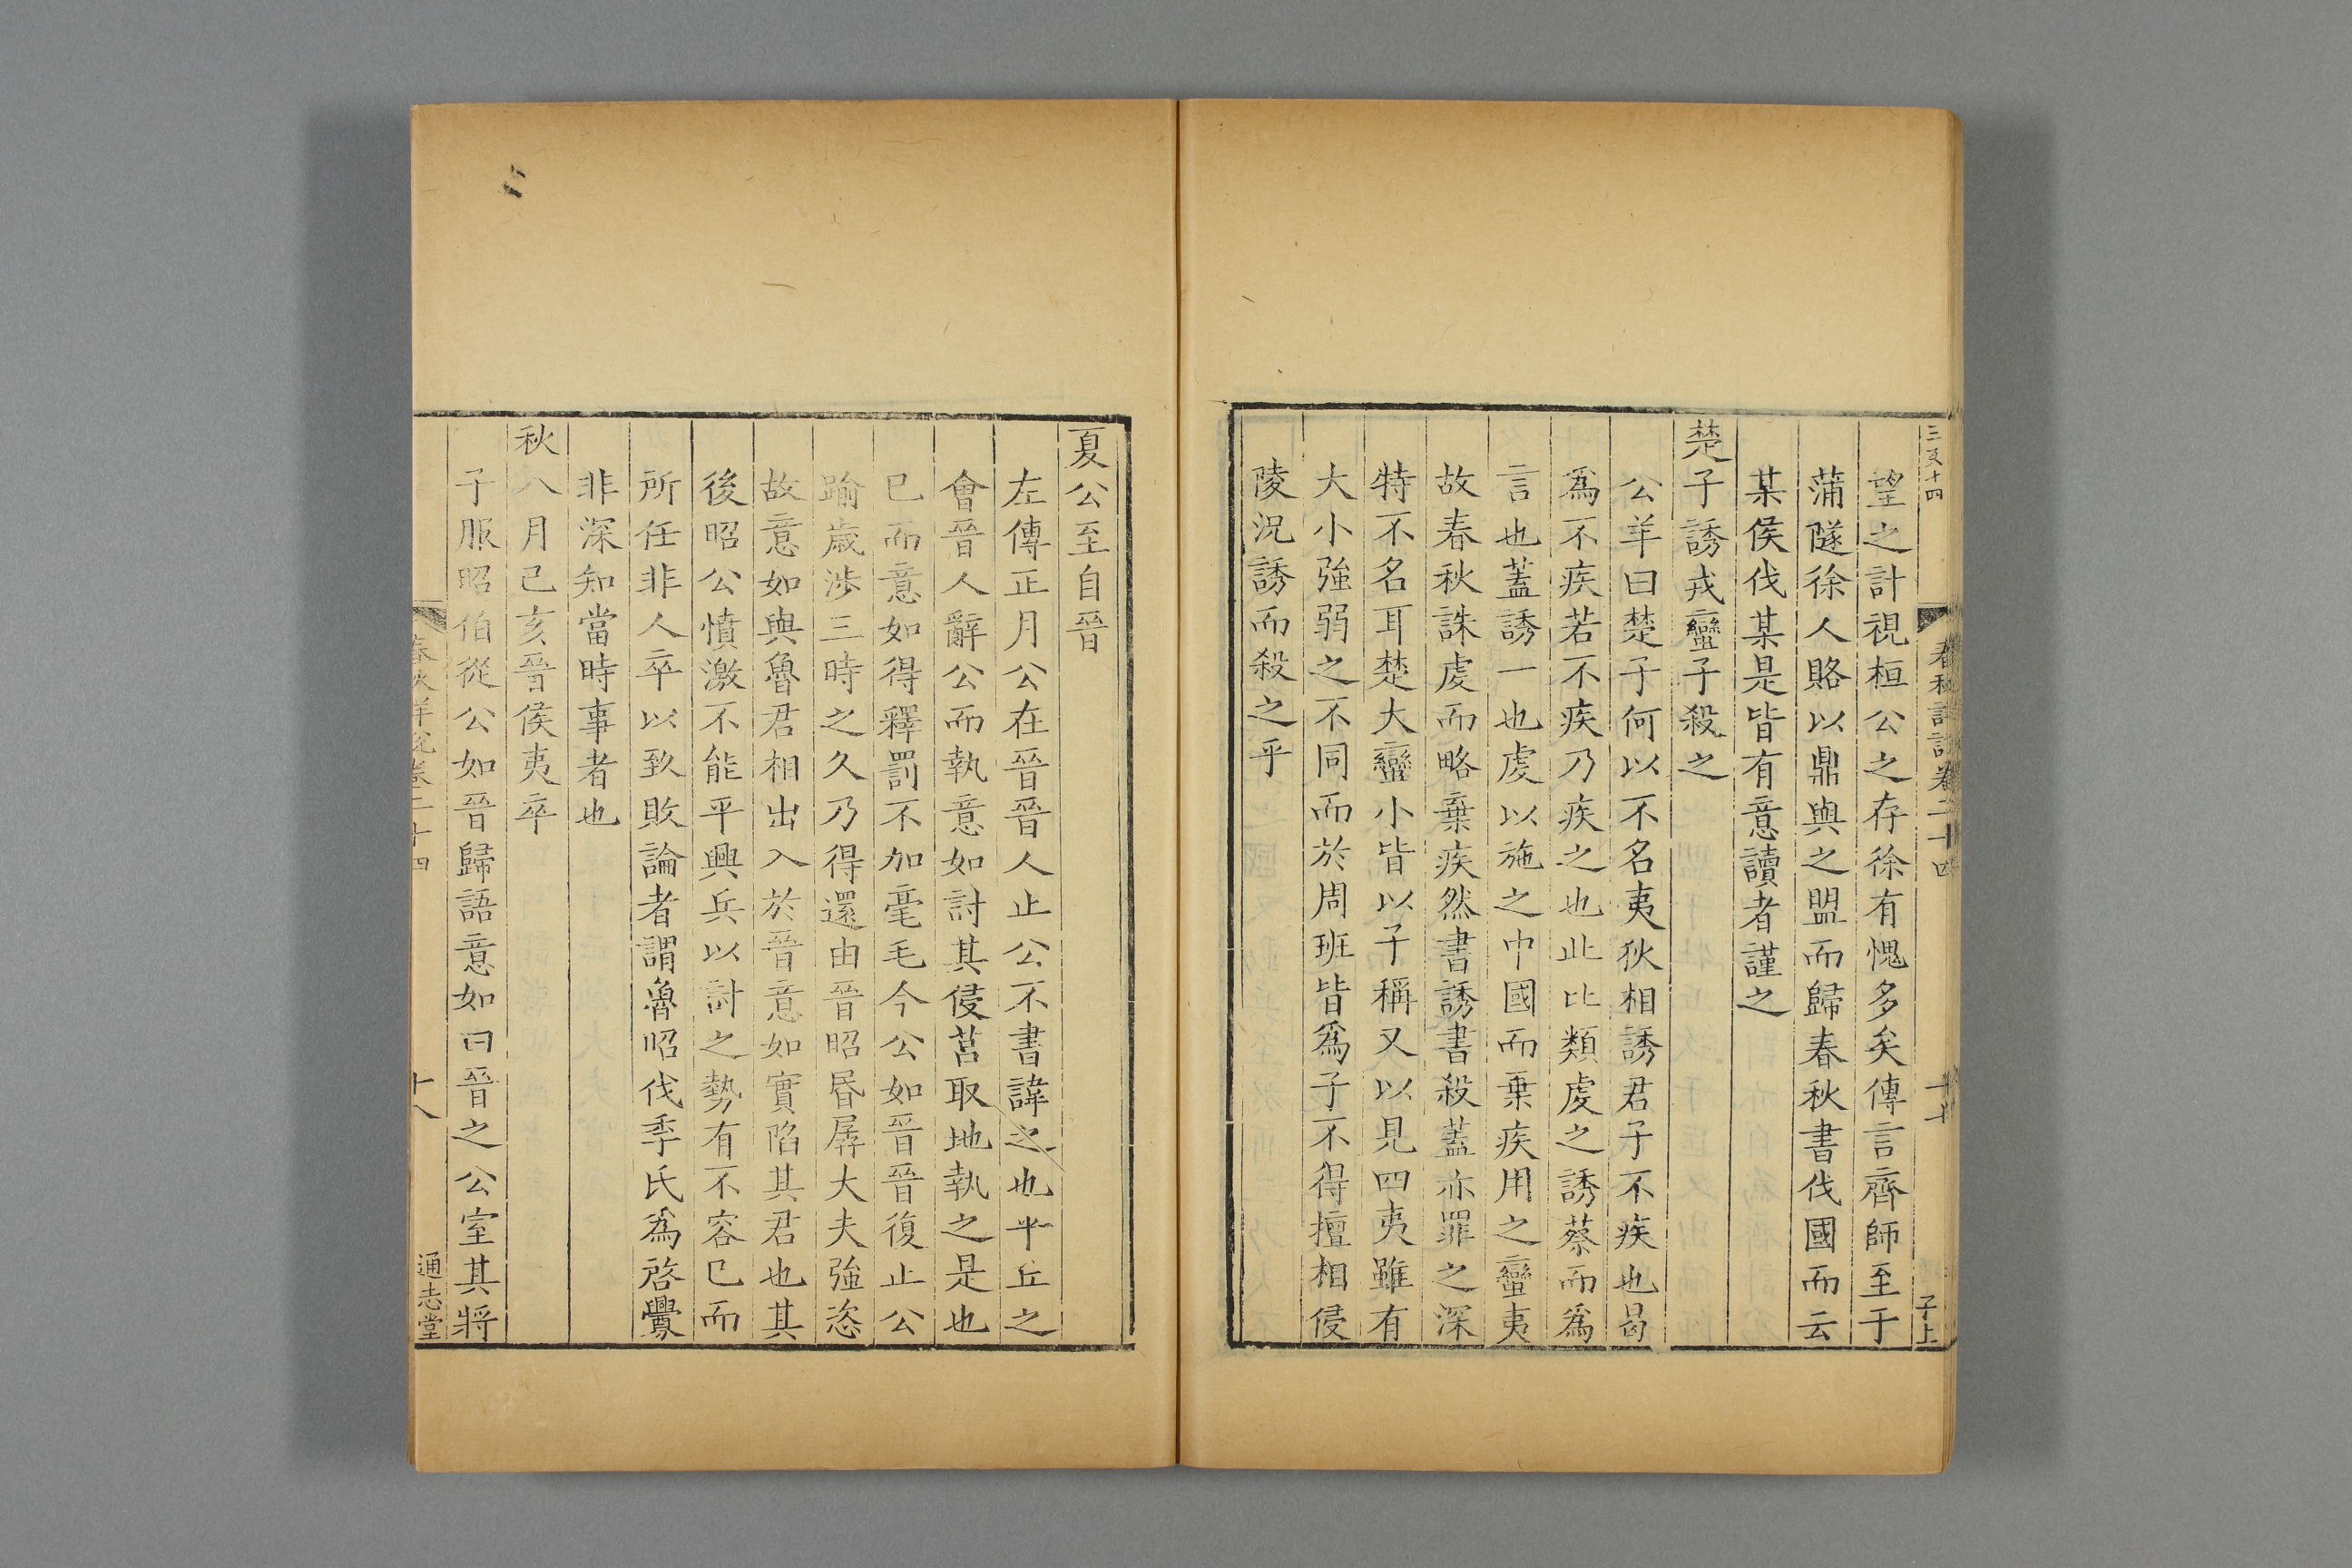 三百十四
春秋詳說卷二十四
十七
子上
望之計視桓公之存徐有愧多矣傳言齊師至于
蒲隧徐人賂以鼎與之盟而歸春秋書伐國而云
某侯伐某是皆有意讀者謹之
楚子誘戎蠻子殺之
公羊曰楚子何以不名夷狄相誘君子不疾也曷
爲不疾若不疾乃疾之也此比類虔之誘蔡而爲
言也蓋誘一也虔以施之中國而棄疾用之蠻夷
故春秋誅虔而略棄疾然書誘書殺蓋亦罪之深
特不名耳楚大蠻小皆以子稱又以見四夷雖有
大小強弱之不同而於周班皆爲子不得擅相侵
陵況誘而殺之乎
夏公至自晉
左傳正月公在晉晉人止公不書諱之也平丘之
會晉人辭公而執意如討其侵莒取地執之是也
已而意如得釋罰不加毫毛今公如晉晉復止公
踰歲涉三時之久乃得還由晉昭昬孱大夫強恣
故意如與魯君相出入於晉意如實陷其君也其
後昭公憤激不能平興兵以討之勢有不容已而
所任非人卒以致敗論者謂魯昭伐季氏爲啓釁
非深知當時事者也
秋八月己亥晉侯夷卒
子服昭伯從公如晉歸語意如曰晉之公室其將
春秋詳說卷二十四
十八
通志堂